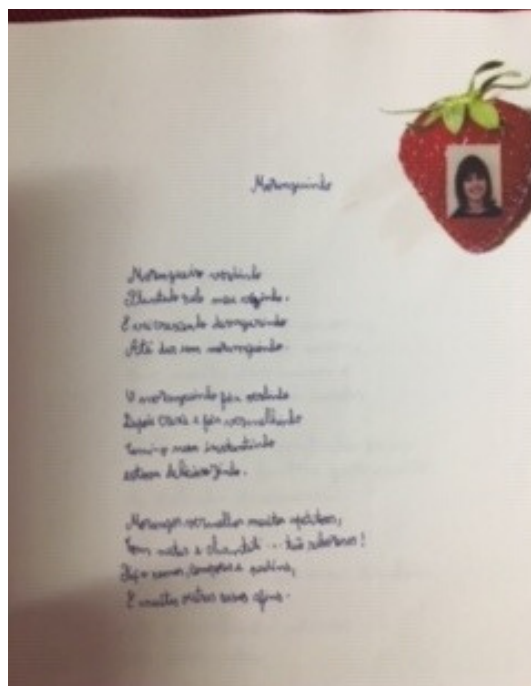 Moranguinho
Morangueiro verdinho
Plantado pelo meu vizinho.
E vai crescendo devagarinho
Até dar um moranguinho.
O moranguinho fica verdinho
Depois cresce e fica vermelhinho
num instantinho
estava deliciozinho.
Morangos vermelhos muito apetitosos,
com natas e chantili... tão saborosos!
compotas e
E muitas outras coisas afins.